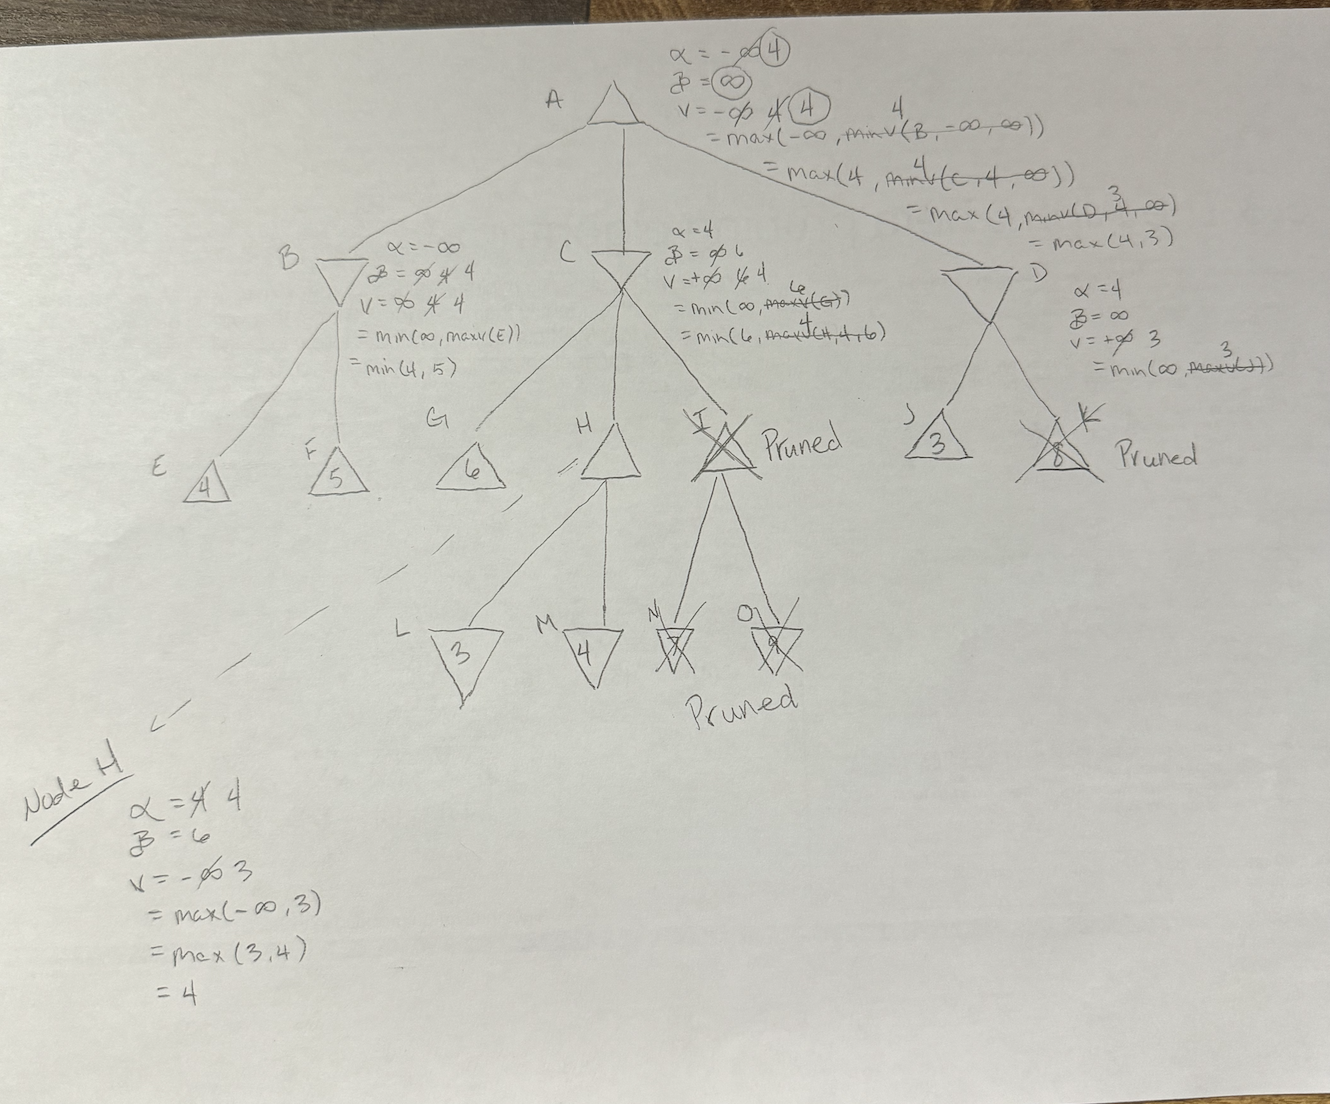 α = -∞ 4
β = ∞
A
v = -∞ 4 4
4
= max(-∞, minv(B, -∞, ∞))
4
= max(4, minv(C, 4, ∞))
3
= max(4, minv(D, 4, ∞)
= max(4,3)
B
α = -∞
β = ∞ 4 4
v = ∞ 4 4
= min(∞, maxv(E))
= min(4, 5)
C
α = 4
β = ∞ 6
v = +∞ 6 4
6
= min(∞, maxv(G))
4
= min(6, maxv(H,4,6)
D
α = 4
β = ∞
v = +∞ 3
3
= min(∞, maxv(J))
E
4
F
5
G
6
H
I
Pruned
J
3
K
8
Pruned
L
3
M
4
N
7
O
9
Pruned
Node H
α = 4 4
β = 6
v = -∞ 3
= max(-∞, 3)
= max(3,4)
= 4